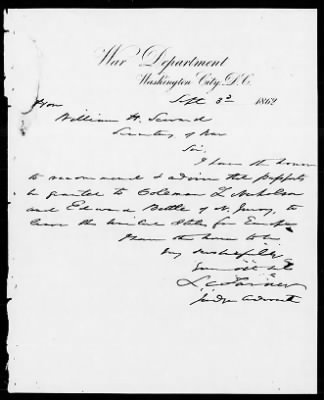 War Department
Washington City, D.C.
Sept 3d 1862
Hon
William H. Seward
Secretary of War
Sir,
I have the honor
to recommend & advise that passports
be granted to Coleman L Nicholson
and Edward Bettle of N. Jersey, to
leave the United States for Europe
I have the honor to be
very respectfully
Your obt
L C Turner
Judge Advocate